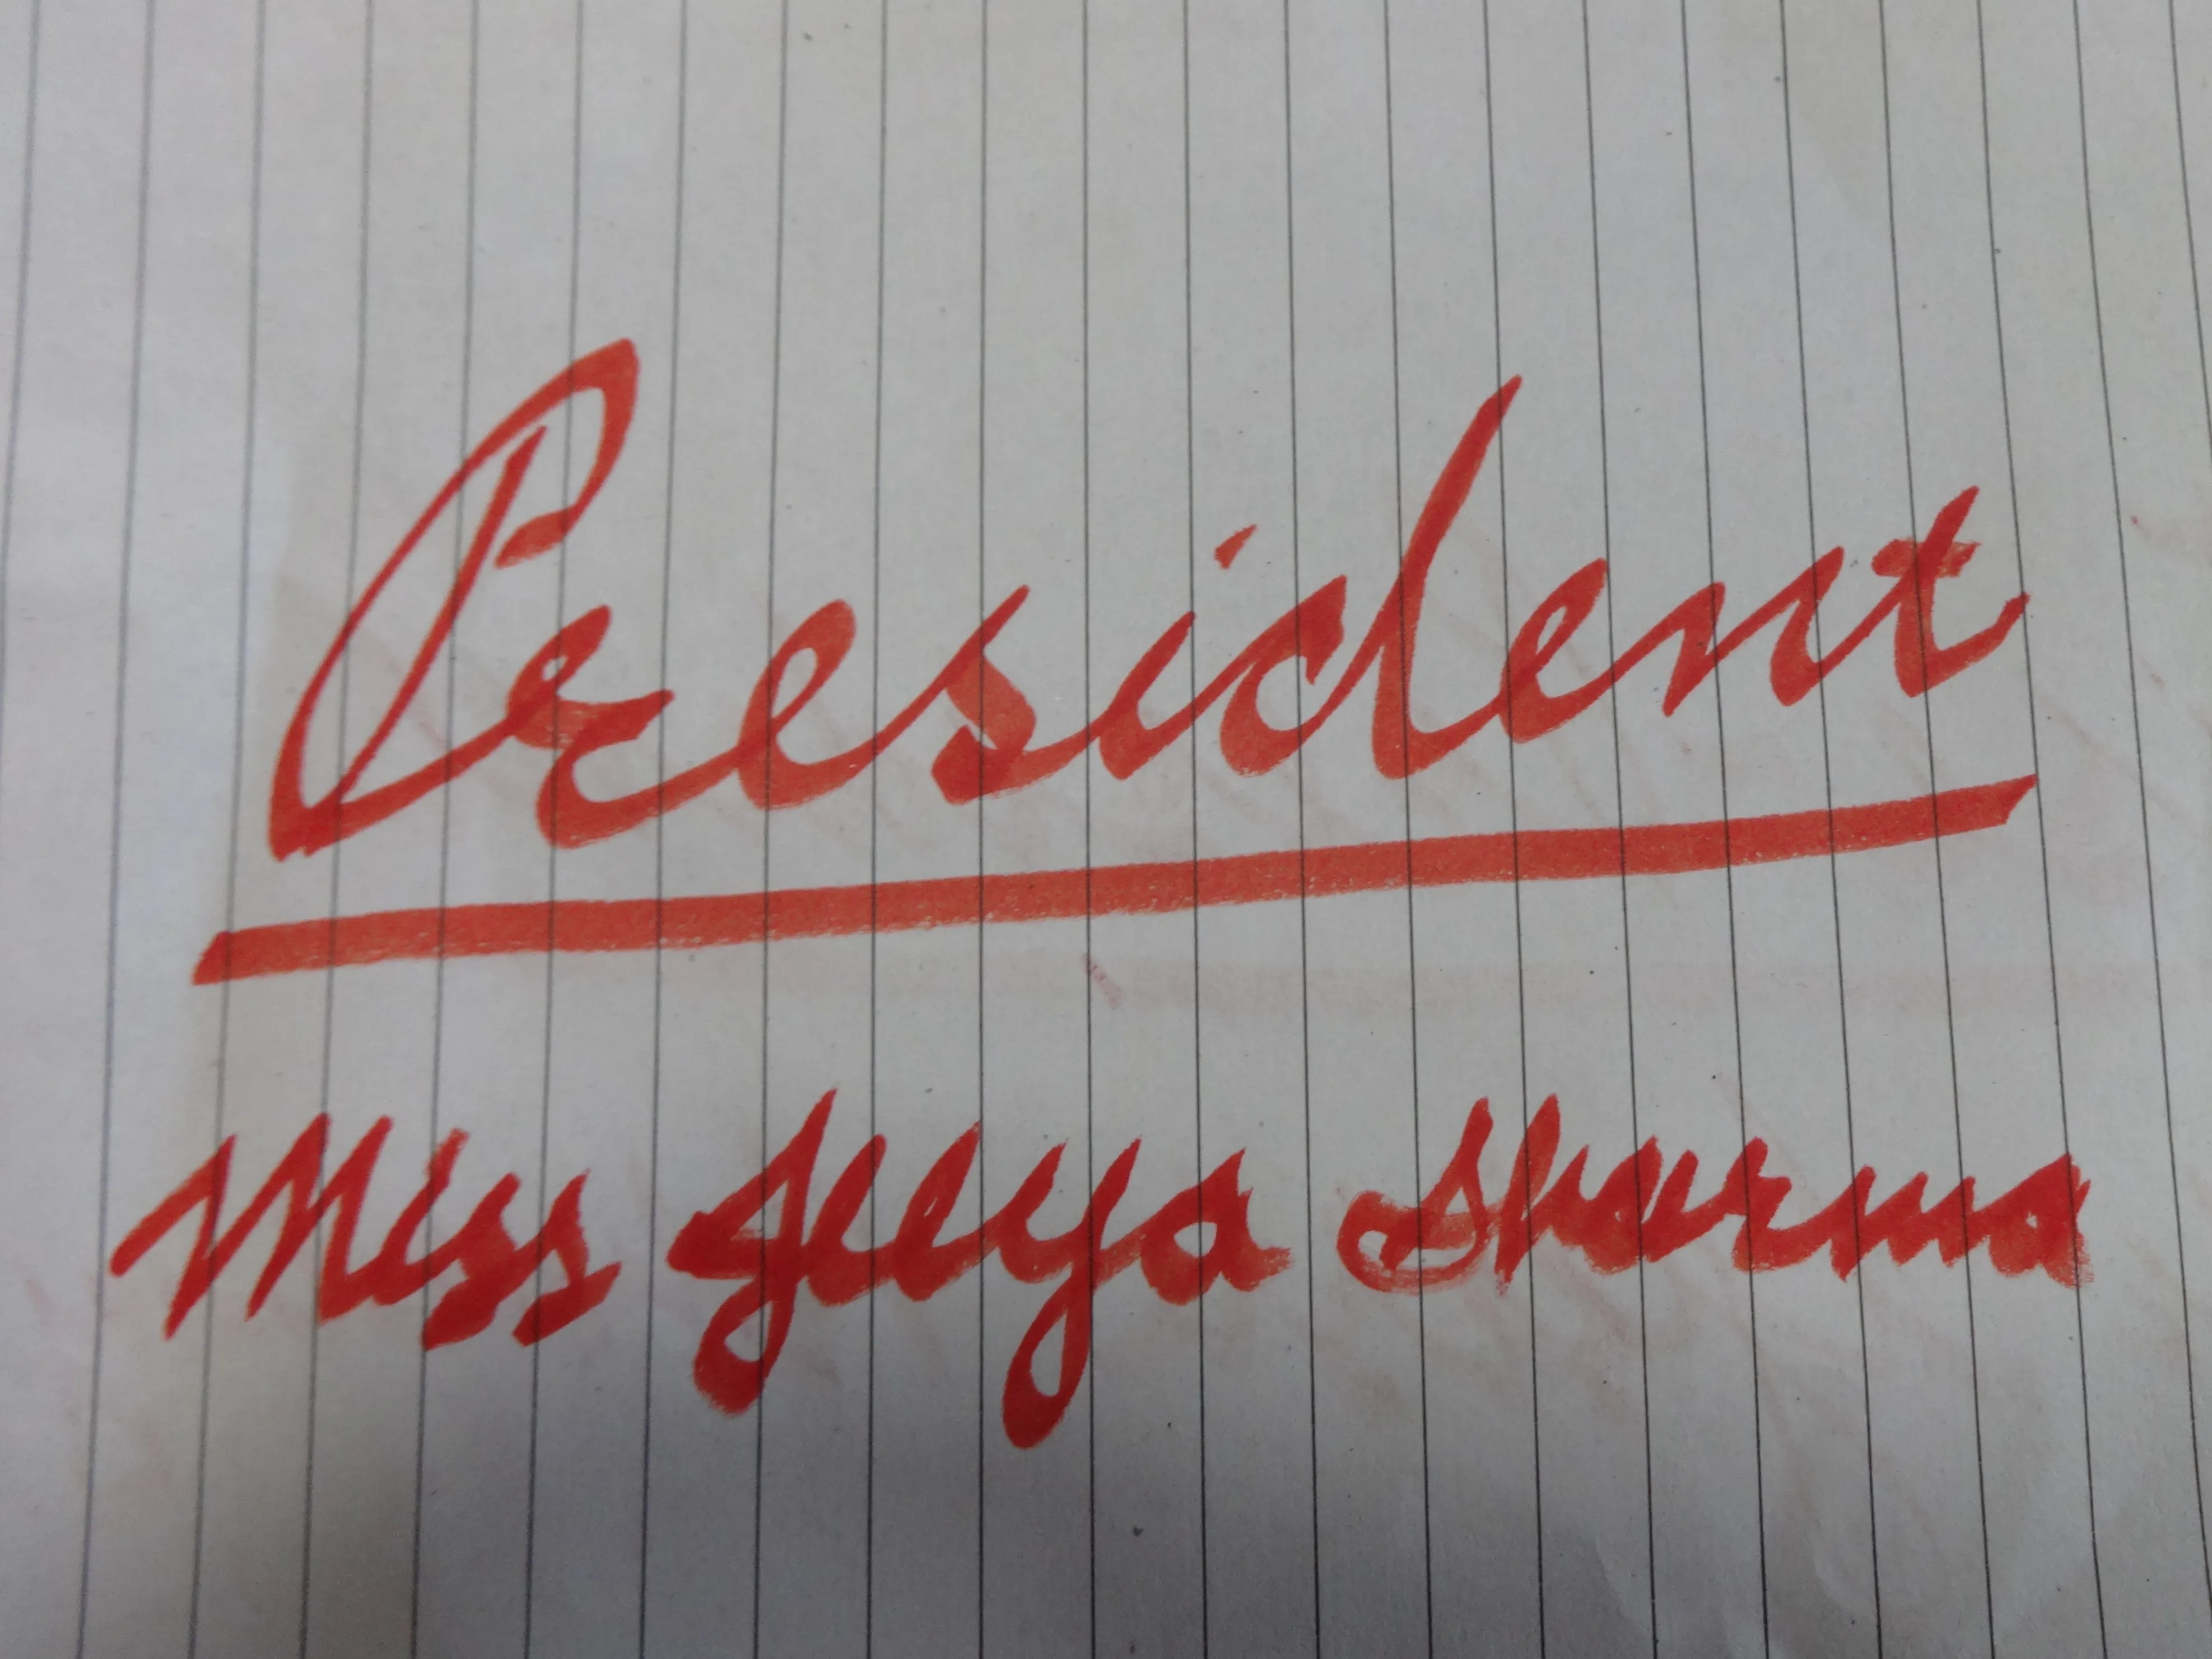 President
Miss Jeeya Sharma